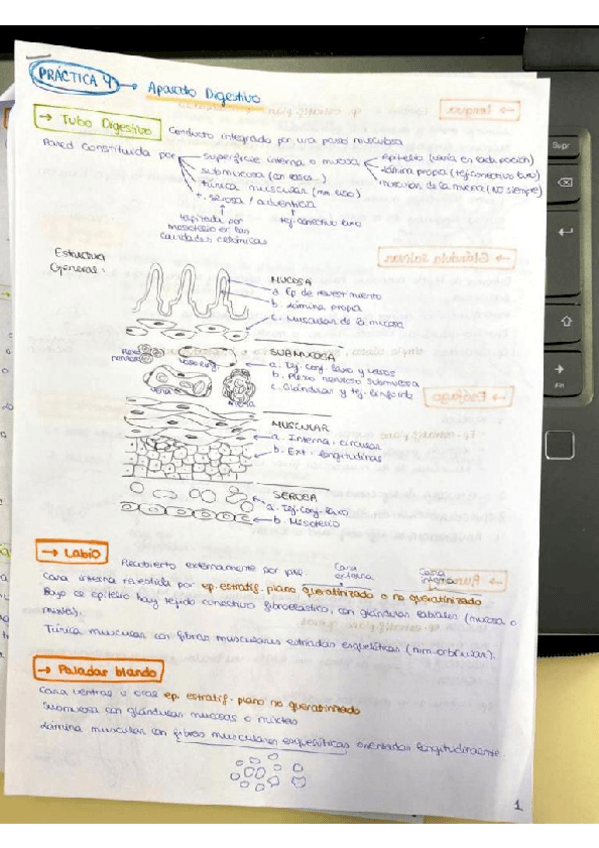 PRÁCTICA 4 → Aparato Digestivo
→ Tubo Digestivo
Conducto integrado por una pared musculosa
Pared constituida por
superficie interna o mucosa
epitelio (varía en cada porción)
lámina propia (tej. conectivo laxo)
muscular de la mucosa (NO siempre)
submucosa (con vasos...)
túnica muscular (m. liso)
t. serosa / adventicia
tapizada por mesotelio en las cavidades celómicas
tej. conectivo laxo
Estructura General:
MUCOSA
a. Ep de revestimiento
b. Lámina propia
c. Muscular de la mucosa
SUBMUCOSA
a. Tej. conj. laxo y vasos
b. Plexo nervioso submucosa
c. Glándulas y tej. linfoide
Plexo nervioso
Vaso
vena
arteria
MUSCULAR
a. Interna: circular
b. Ext: longitudinal
SEROSA
a. Tej. conj. laxo
b. Mesotelio
→ Labio
Recubierto externamente por piel.
Cara externa
Cara interna
Cara interna revestida por ep. estratif. plano queratinizado o no queratinizado
Bajo el epitelio hay tejido conectivo fibroelástico, con glándulas labiales (mucosa o mixtas).
Túnica muscular con fibras musculares estriadas esqueléticas (mm. orbicular).
→ Paladar blando
Cara ventral u oral ep. estratif. plano no queratinizado
Submucosa con glándulas mucosas o mixtas
Lámina muscular con fibras musculares esqueléticas orientadas longitudinalmente.
1
Supr
Fn